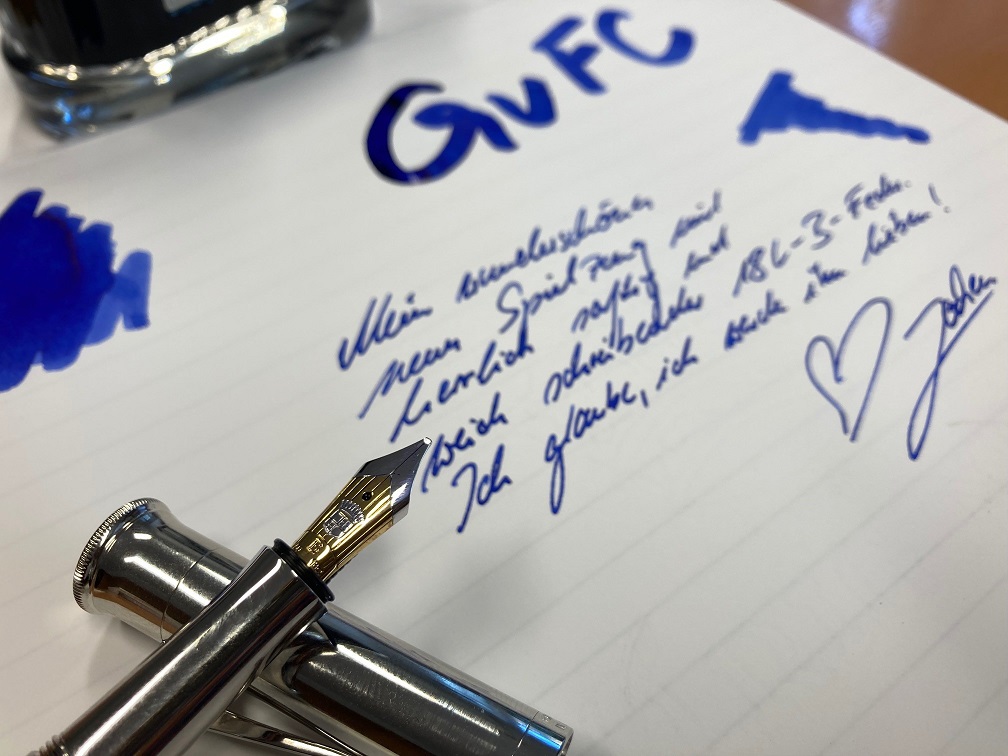 GvFC
Mein wunderschönes
neues Spielzeug mit
herrlich saftig und
weich schreibender 18C-B-Feder.
Ich glaube, ich werde ihn lieben!
Jochen